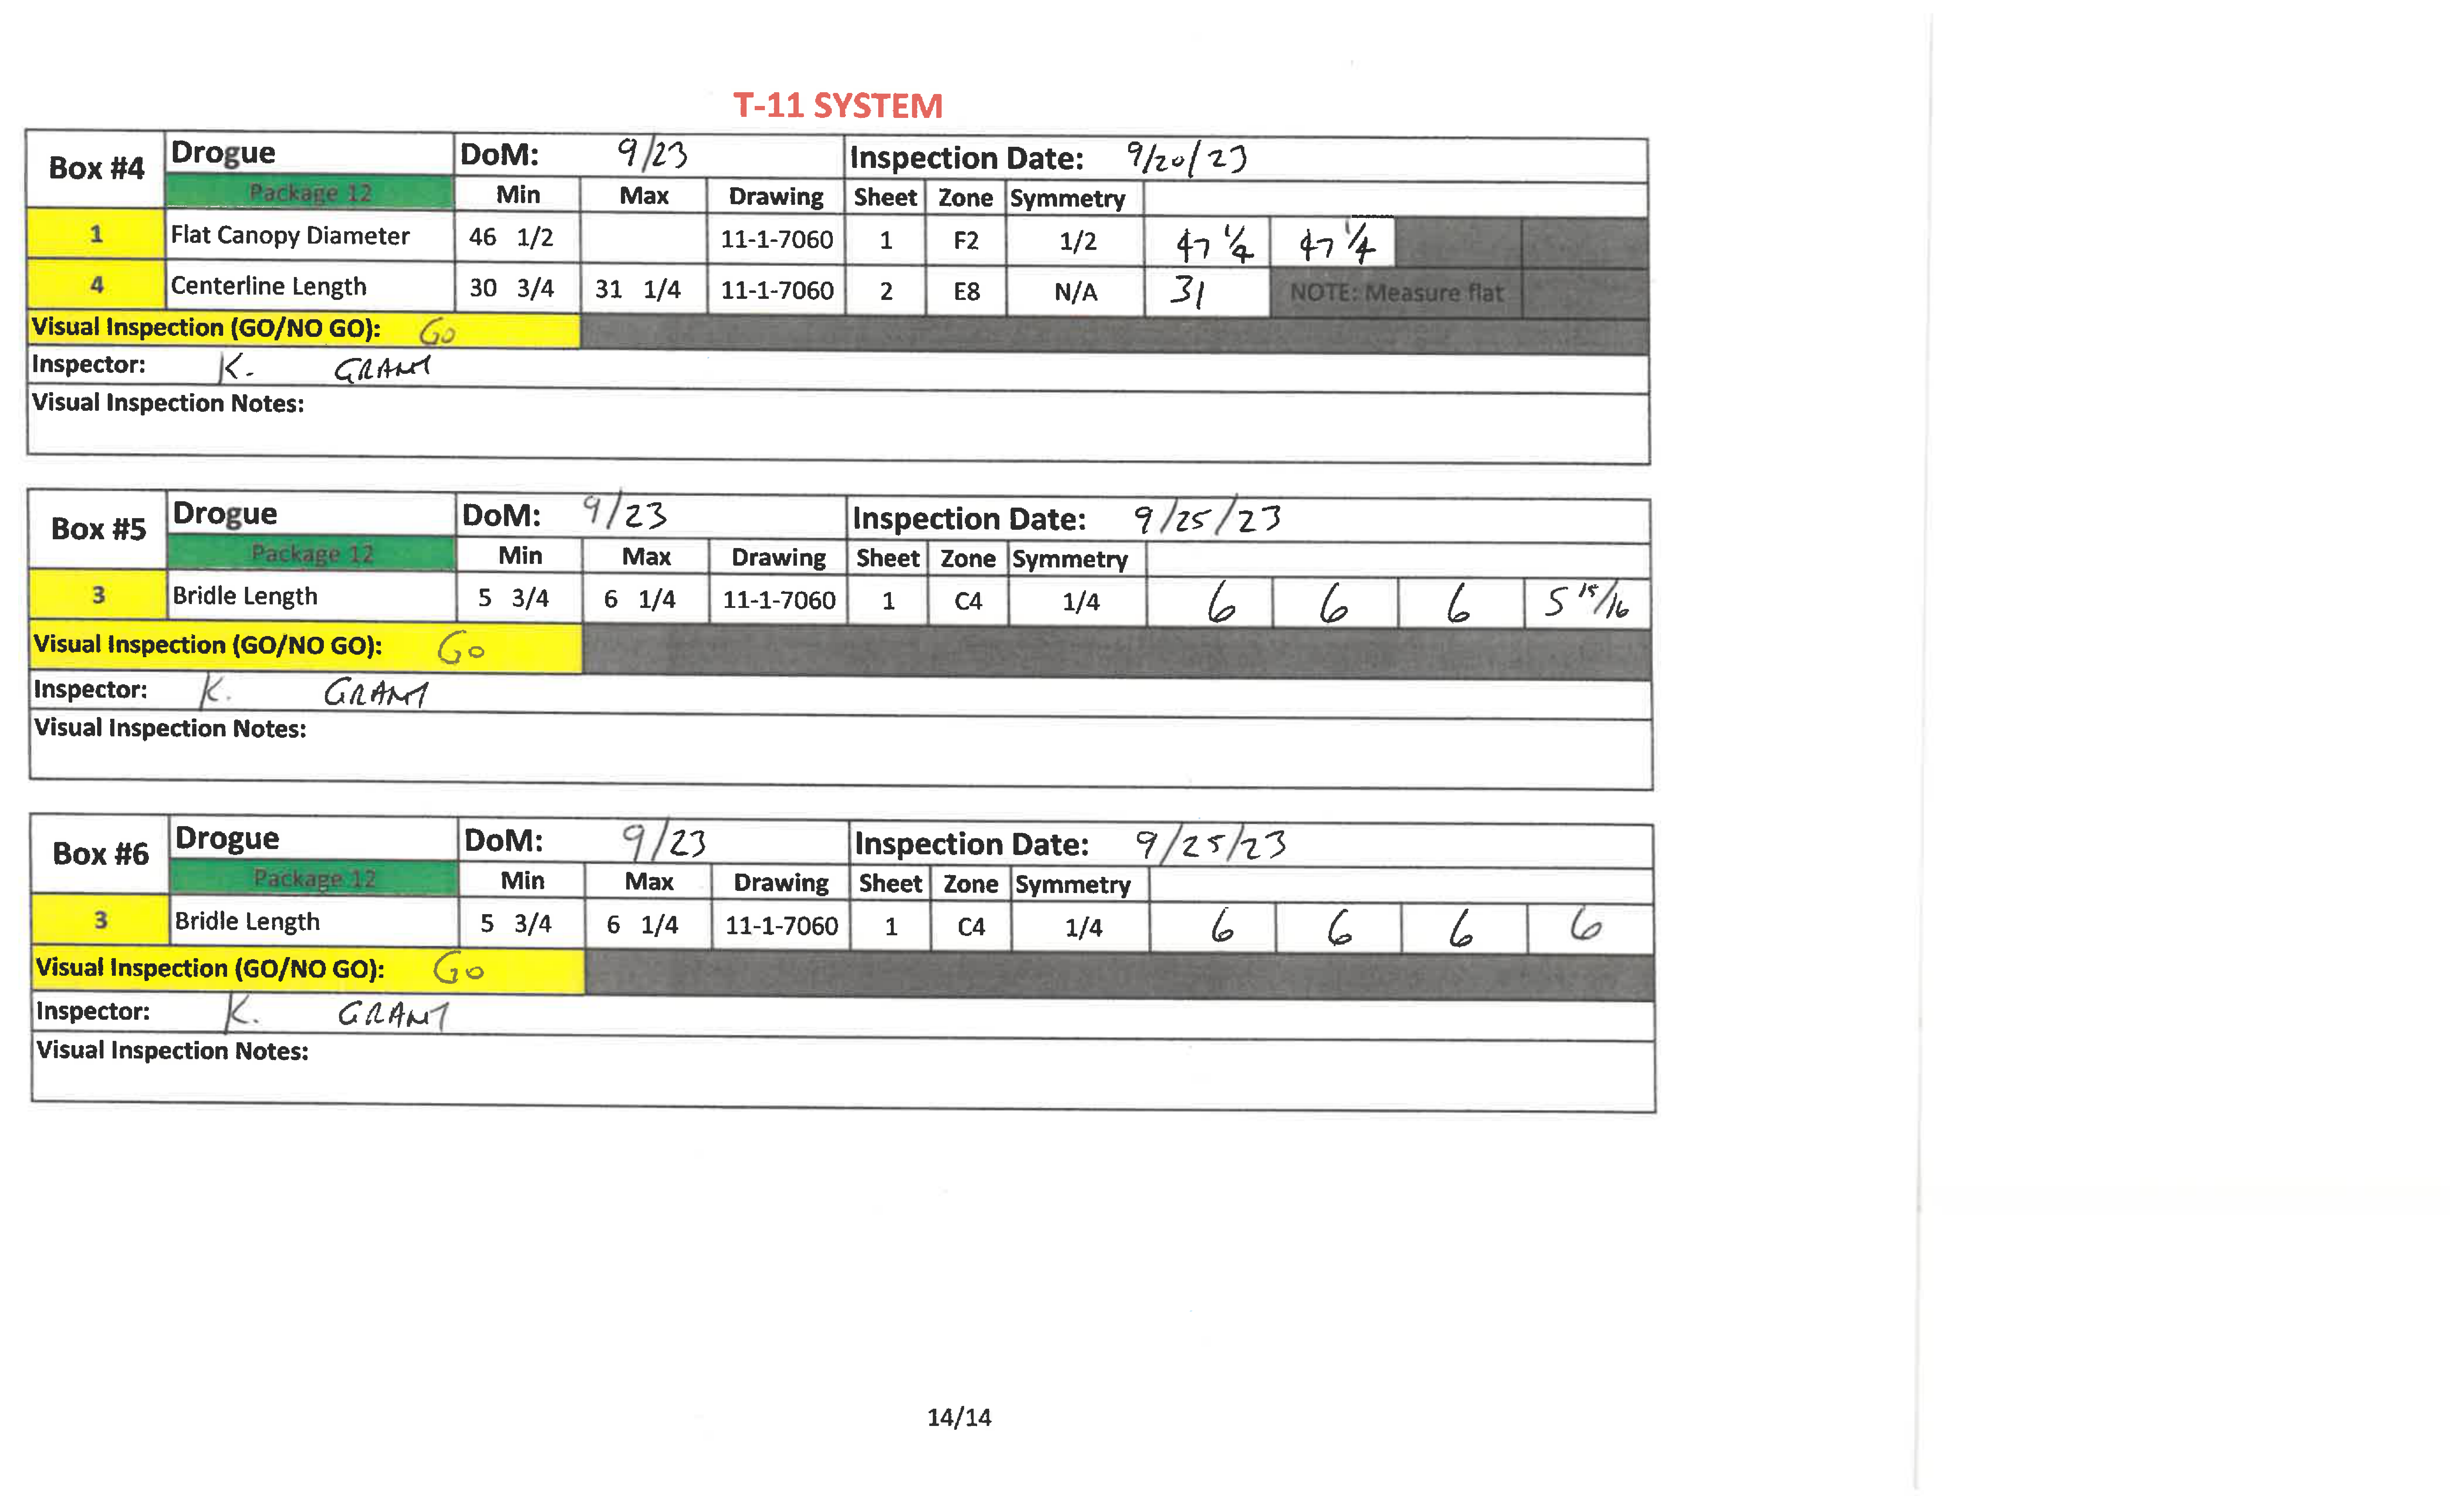 T-11 SYSTEM
Box #4 Drogue DoM: 9/23 Inspection Date: 9/20/23
Package 12 Min Max Drawing Sheet Zone Symmetry
1 Flat Canopy Diameter 46 1/2 11-1-7060 1 F2 1/2 47 1/4 47 1/4
4 Centerline Length 30 3/4 31 1/4 11-1-7060 2 E8 N/A 31 NOTE: Measure flat
Visual Inspection (GO/NO GO): GO
Inspector: K. GRANT
Visual Inspection Notes:
Box #5 Drogue DoM: 9/23 Inspection Date: 9/25/23
Package 12 Min Max Drawing Sheet Zone Symmetry
3 Bridle Length 5 3/4 6 1/4 11-1-7060 1 C4 1/4 6 6 6 5 15/16
Visual Inspection (GO/NO GO): Go
Inspector: K. GRANT
Visual Inspection Notes:
Box #6 Drogue DoM: 9/23 Inspection Date: 9/25/23
Package 12 Min Max Drawing Sheet Zone Symmetry
3 Bridle Length 5 3/4 6 1/4 11-1-7060 1 C4 1/4 6 6 6 6
Visual Inspection (GO/NO GO): Go
Inspector: K. GRANT
Visual Inspection Notes:
14/14